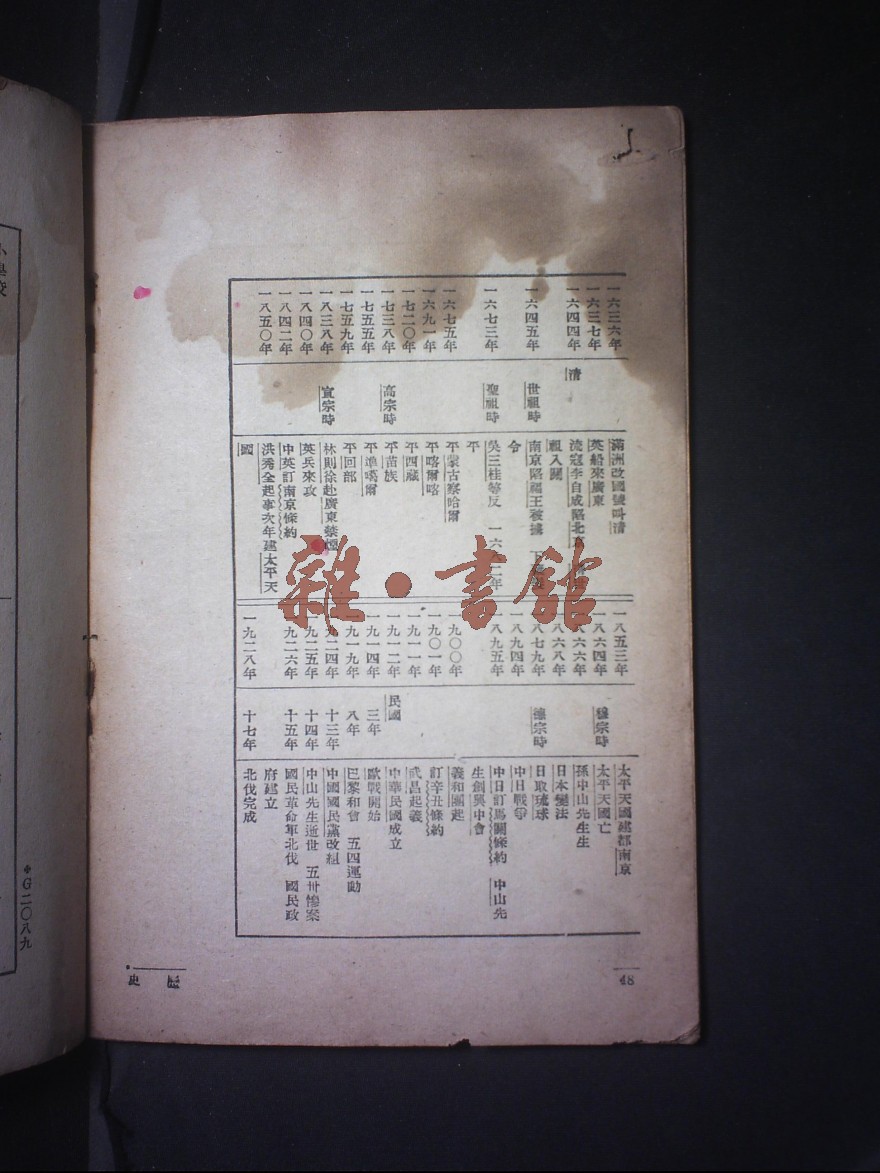 一六三六年 滿洲改國號叫清
一六三七年 英船來廣東
一六四四年 清 流寇李自成陷北京
祖入關
一六四五年 世祖時 南京陷福王被擄 下
令
一六七三年 聖祖時 吳三桂等反 一六 二年
平
一六七五年 平蒙古察哈爾
一六九一年 平喀爾喀
一七二〇年 平西藏
一七三八年 高宗時 平苗族
一七五五年 平準噶爾
一七五九年 平回部
一八三八年 宣宗時 林則徐赴廣東禁煙
一八四〇年 英兵來攻
一八四二年 中英訂南京條約
一八五〇年 洪秀全起事次年建太平天
國
一八五三年 太平天國建都南京
一八六四年 穆宗時 太平天國亡
一八六六年 孫中山先生生
一八六八年 日本變法
一八七九年 德宗時 日取琉球
一八九四年 中日戰爭
一八九五年 中日訂馬關條約 中山先
生創興中會
一九〇〇年 義和團起
一九〇一年 訂辛丑條約
一九一一年 武昌起義
一九一二年 民國 中華民國成立
一九一四年 三年 歐戰開始
一九一九年 八年 巴黎和會 五四運動
一九二四年 十三年 中國國民黨改組
一九二五年 十四年 中山先生逝世 五卅慘案
一九二六年 十五年 國民革命軍北伐 國民政
府建立
一九二八年 十七年 北伐完成
48
歷史
小學校
G二〇八九
雜·書館